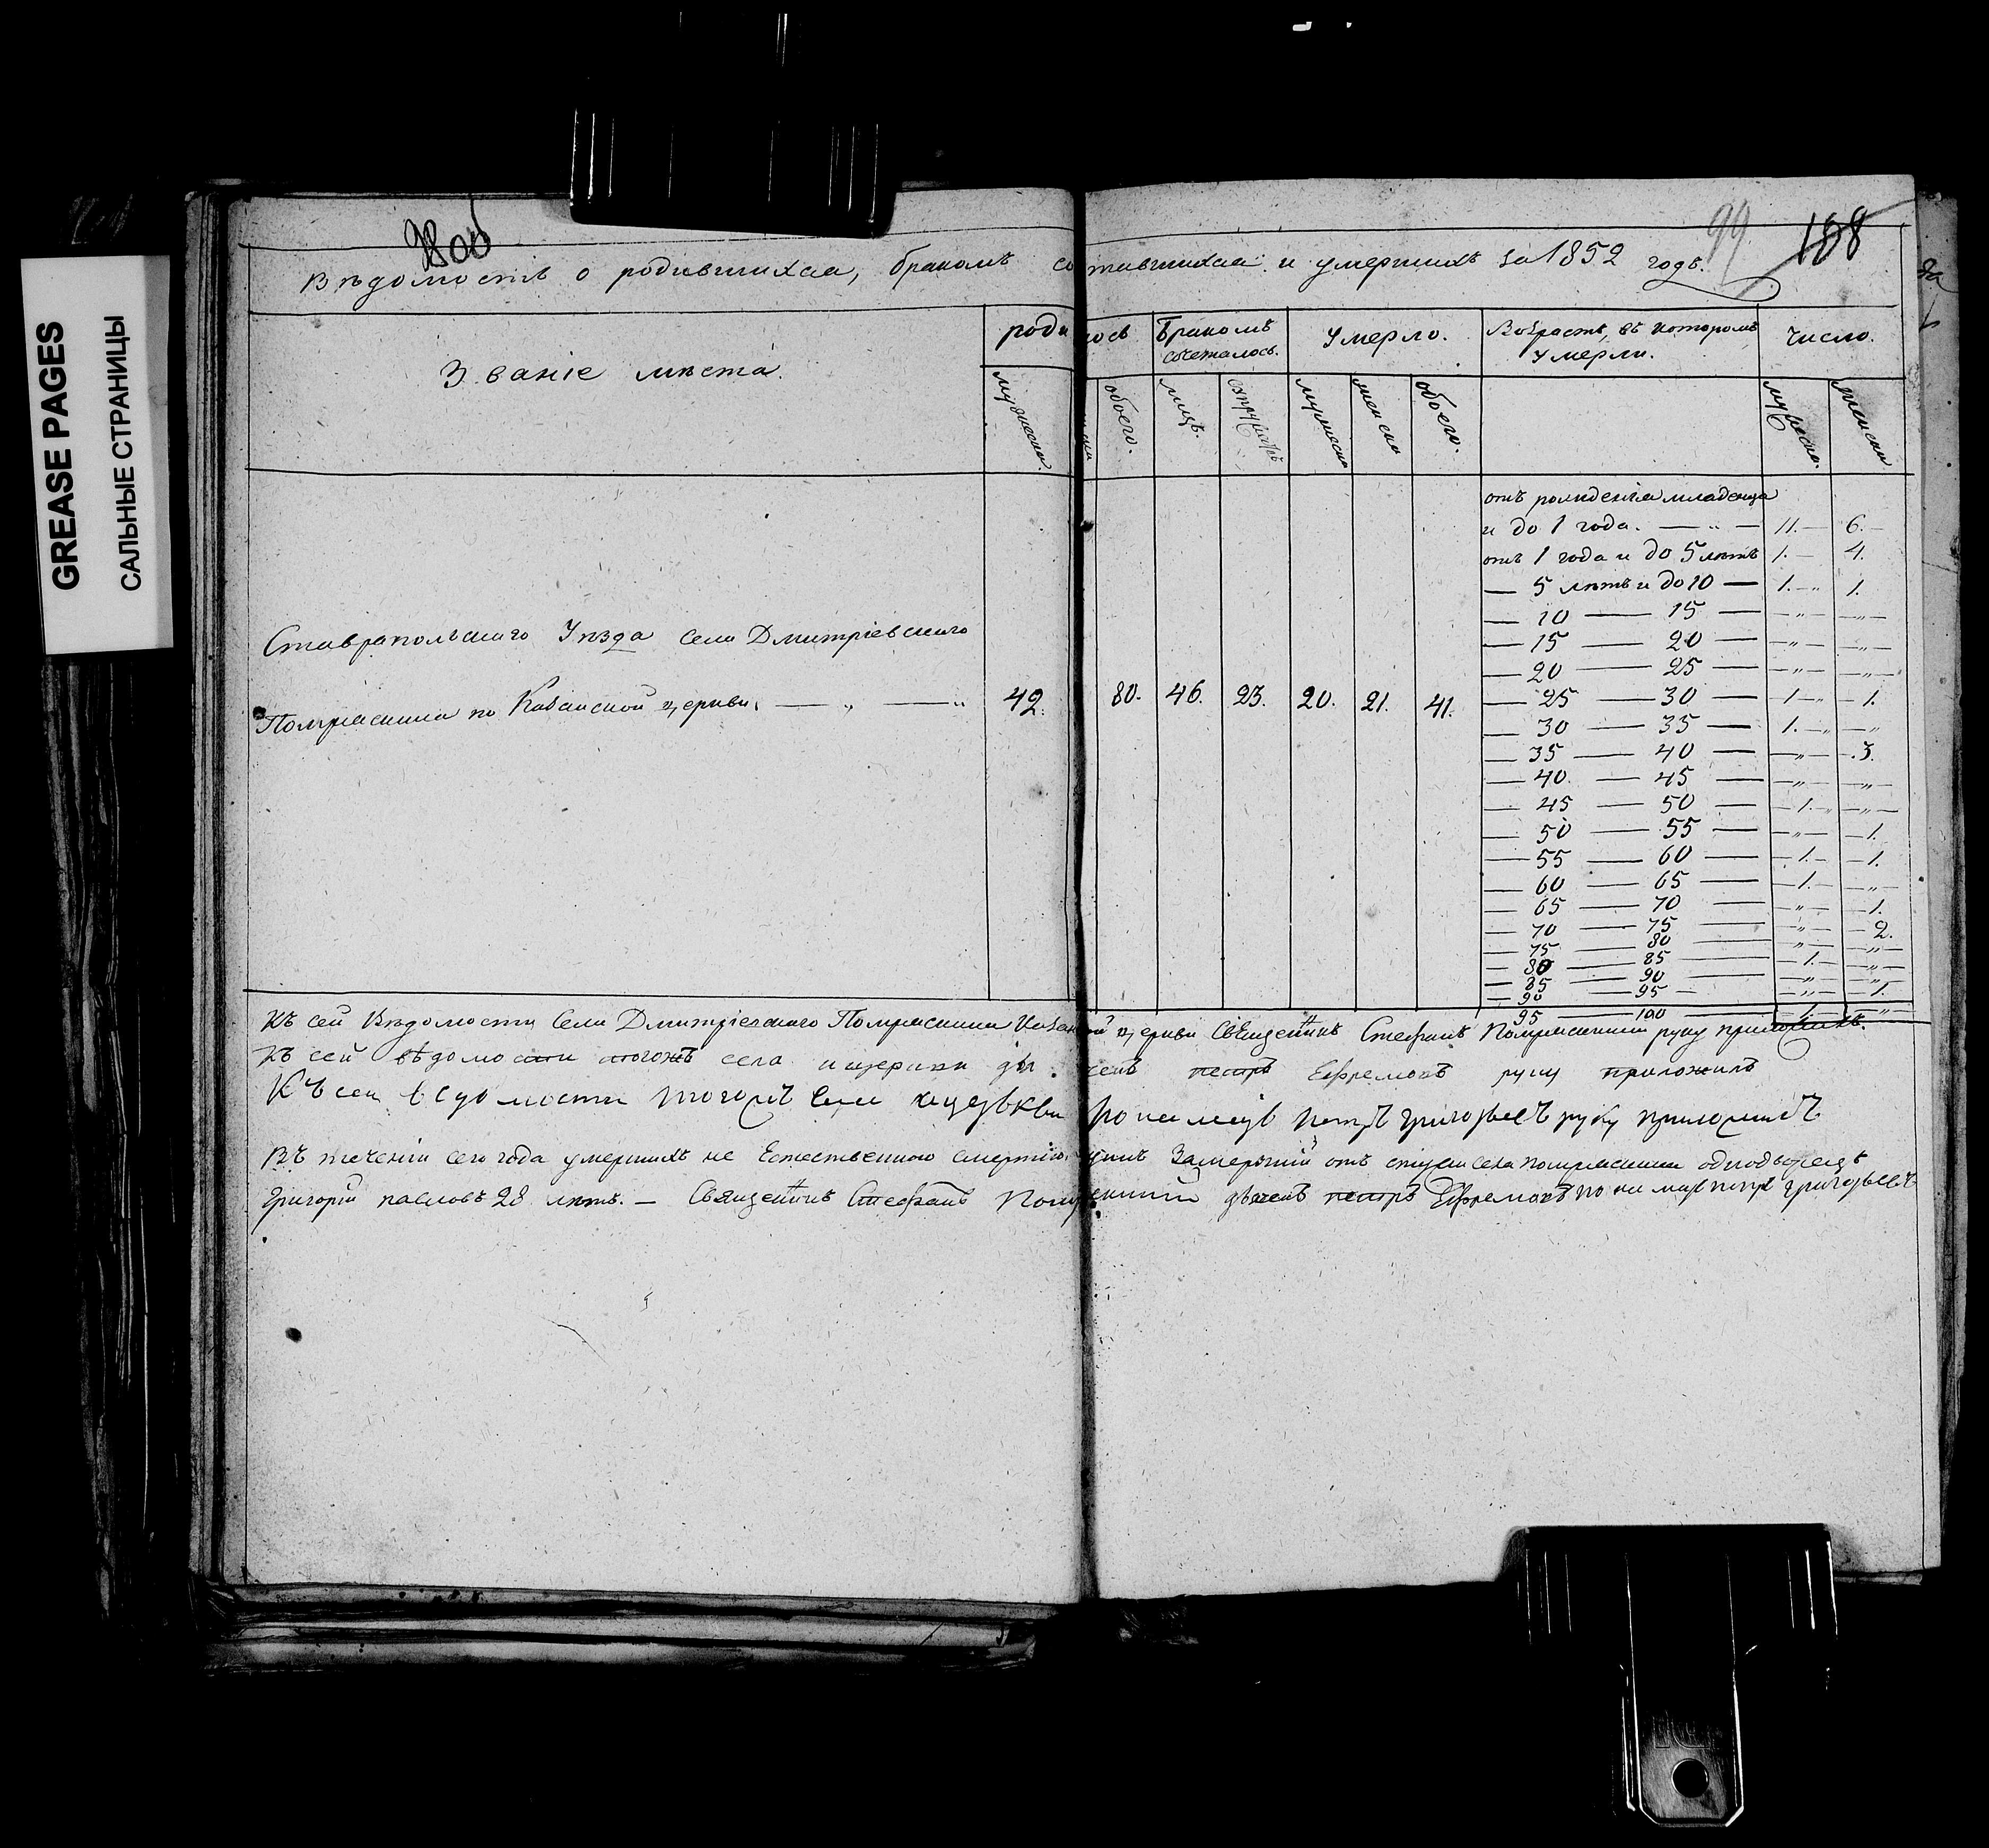 GREASE PAGES
САЛЬНЫЕ СТРАНИЦЫ
98об
99 188
Вѣдомость о родившихся, бракомъ со тавшихся и умершихъ за 1852 годъ.
Званіе мѣста.
роди лось
Бракомъ сочеталось.
Умерло.
Возрастъ, въ которомъ умерли.
Число.
мужеска
обоего.
лицъ.
мужеска
женска
обоего.
мужеска.
женска
отъ рожденія младенца
и до 1 года. — „ — 11. — 6. —
отъ 1 года и до 5 лѣтъ 1. — 4.
— 5 лѣтъ и до 10 — 1. — „ 1.
— 10 — 15 — — „ — — „ —
— 15 — 20 — — „ — — „ —
— 20 — 25 — — „ — — „ —
Ставрапольскаго Уѣзда села Дмитріевскаго
Помряскина по Казанской церкви. — „ — „ 42. 80. 46. 23. 20. 21. 41. — 25 — 30 — 1 — „ — 1.
— 30 — 35 — 1. — „ — „
— 35 — 40 — — „ — 3.
— 40 — 45 — — „ — — „ —
— 45 — 50 — — 1. — „ — „ —
— 50 — 55 — — „ — — 1.
— 55 — 60 — — 1. — — 1.
— 60 — 65 — — 1. — — „ —
— 65 — 70 — — „ — — 1.
— 70 — 75 — — „ — — 2.
— 75 — 80 — — „ — — „ —
— 80 — 85 — — 1. — — „ —
— 85 — 90 — — „ — — „ —
— 90 — 95 — — „ — — 1.
95 — 100 — 1. — „
Къ сей Вѣдомости Села Дмитріевскаго Помряскина Казан ой церкви Священникъ Стефанъ Помряскинский руку приложилъ.
Къ сей вѣдомости тогожъ села и церкви дь чекъ петръ Ефремовъ руку приложилъ
Къ сеи ведомости тогожъ села и церкви понамарь петръ григорьевъ руку приложилъ
Въ теченіи сего года умершихъ не Естественною смертію Замерзшій отъ стужи села помряскина однодворецъ
Григорій павловъ 28 лѣтъ. — Священникъ Стефанъ дьчекъ петръ Ефремовъ понамарь петръ григорьевъ